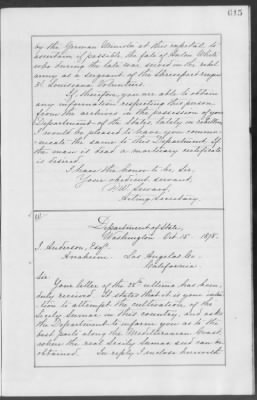 615
by the German Minister at this capital, to
ascertain if possible the fate of
who during the late war served in the rebel
army as a sergeant of the Shreveport
3d. Louisiana Volunteers.
If, therefore, you are able to obtain
any information respecting this person
from the archives in the possession of your
Department of the States lately in rebellion
I would be pleased to have you commu-
nicate the same to this Department. If
the man is dead a mortuary certificate
is desired.
I have the honor to be, Sir,
Your obedient servant,
F. W. Seward,
Acting Secretary.
Department of State,
Washington Oct. 15 1878.
J. Anderson, Esq.
Anaheim Los Angeles Co.
California.
Sir:
Your letter of the 28th ultimo has been
duly received. It states that it is your inten-
tion to attempt the cultivation, of the
Sicily Sumac in this country, and asks
the Department to inform you as to the
best ports along the Mediterranean Coast
where the real Sicily Sumac seed can be
obtained. In reply I enclose herewith